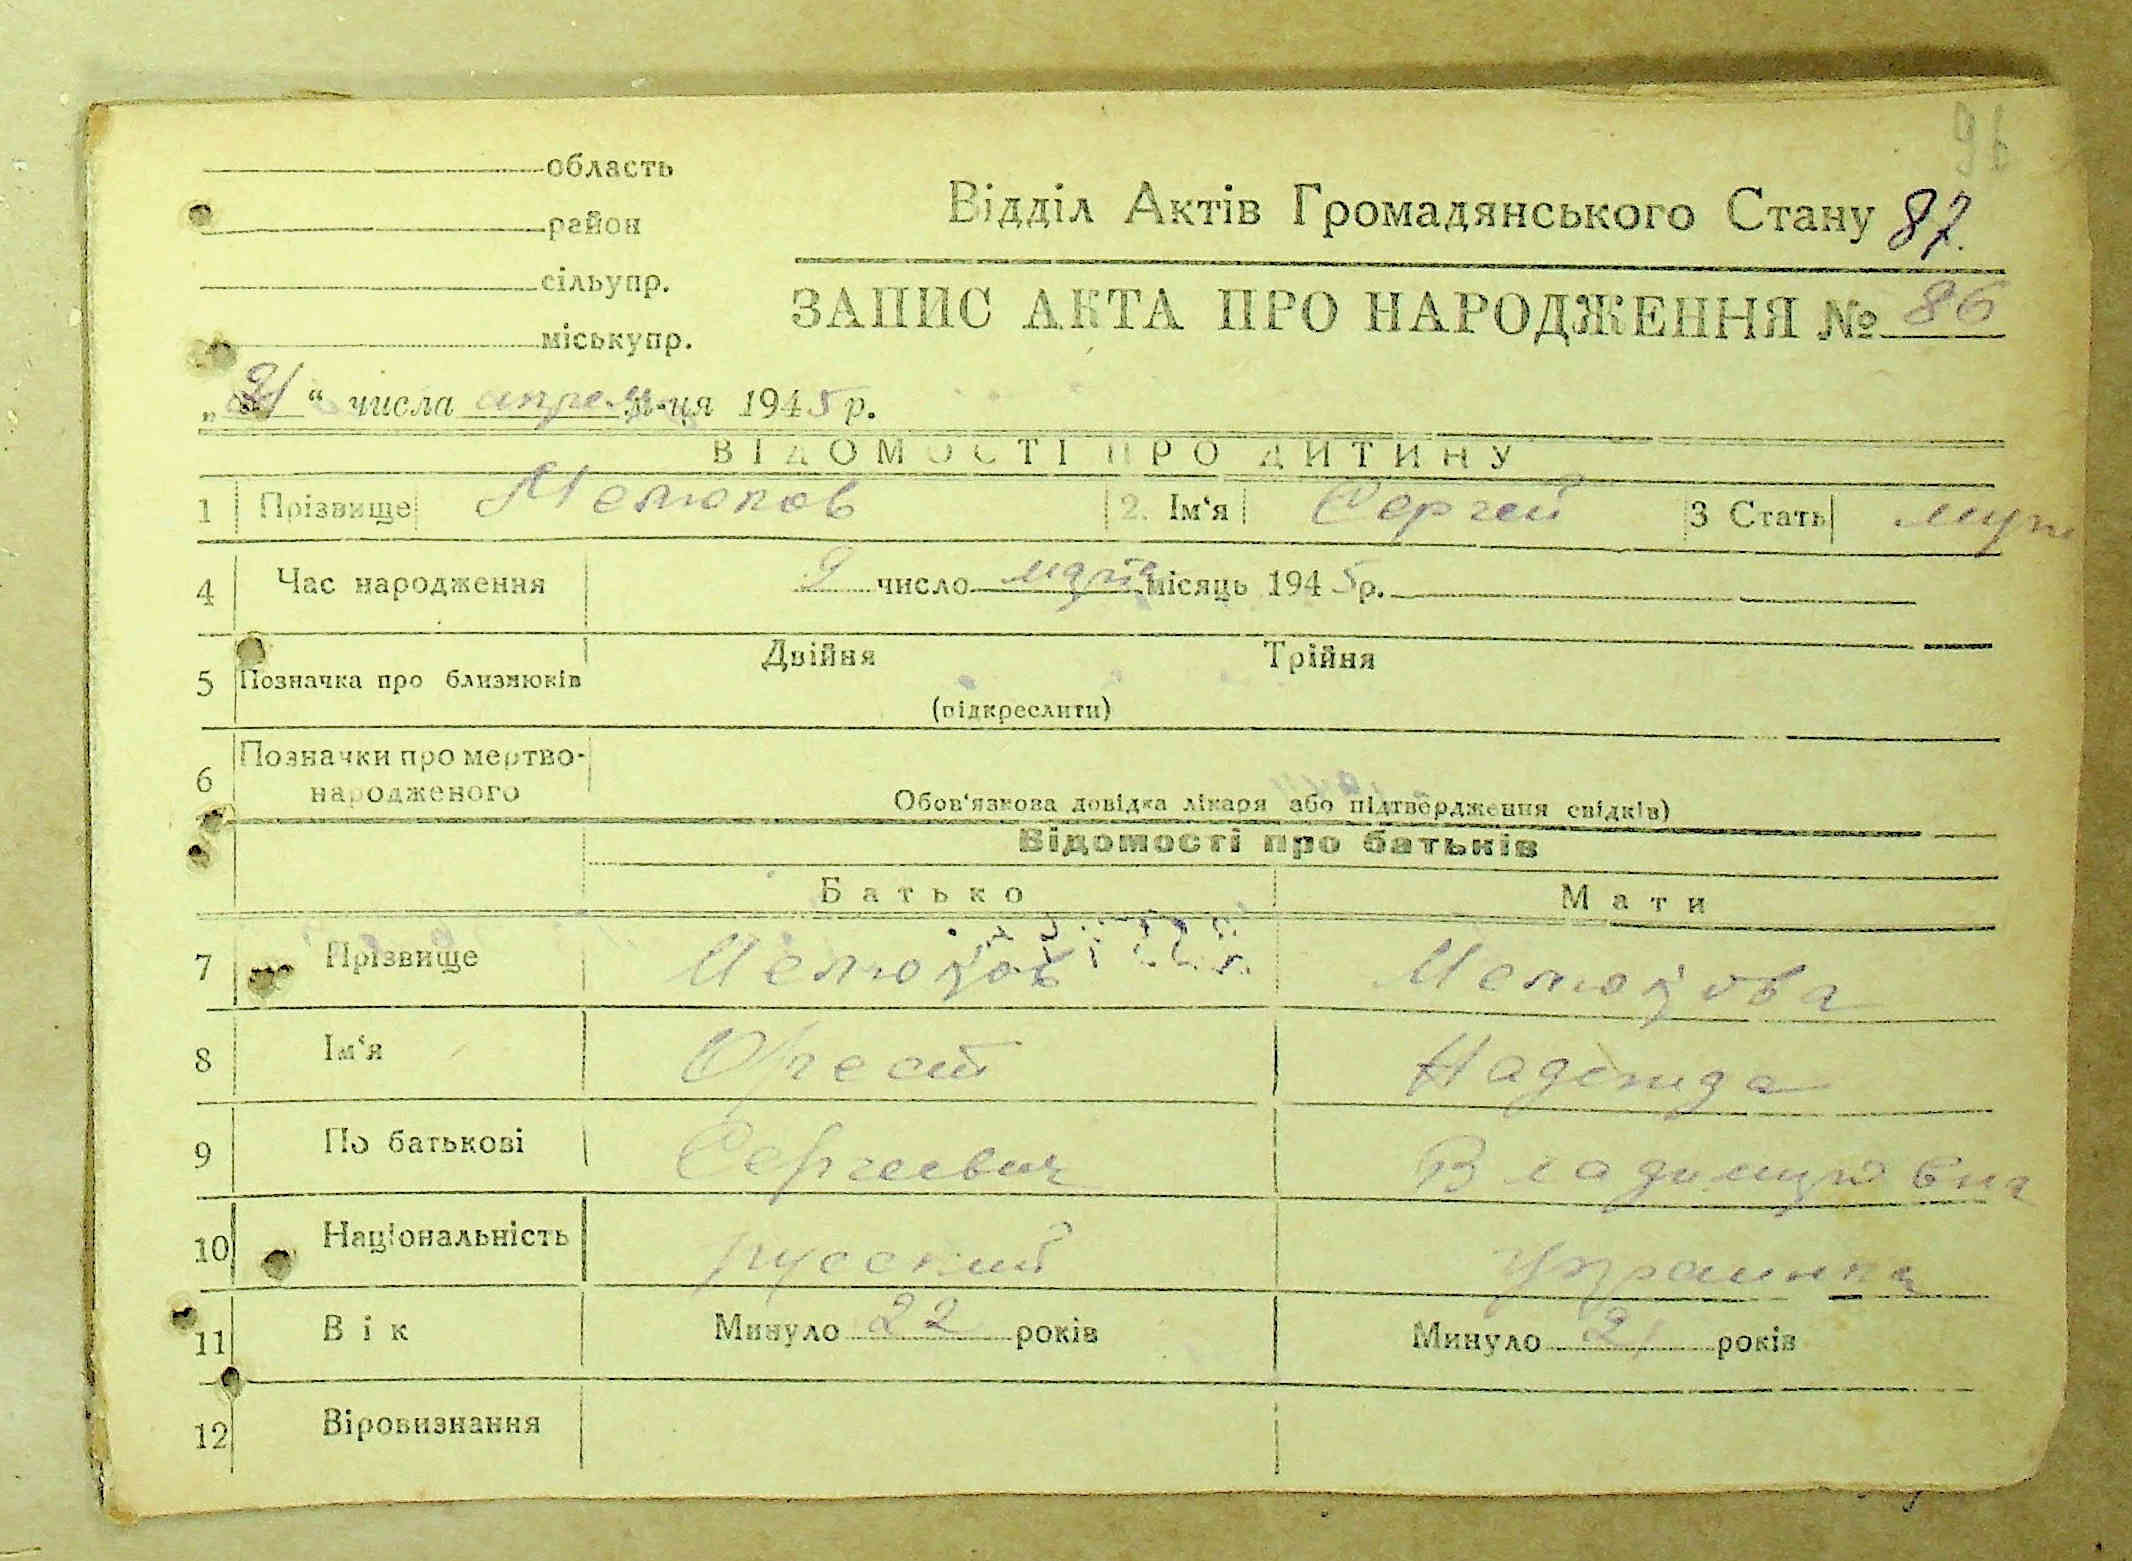 96
область
район
сільупр.
міськупр.
Відділ Актів Громадянського Стану 87.
ЗАПИС АКТА ПРО НАРОДЖЕННЯ № 86
„21“ числа апреля м-ця 1945 р.
ВІДОМОСТІ ПРО ДИТИНУ
1 Прізвище Мелюков 2. Ім‘я Сергей 3 Стать муж
4 Час народження 9 число марта місяць 1945р.
5 Позначка про близнюків Двійня Трійня
(підкреслити)
6 Позначки про мертво-
народженого
Обов‘язкова довідка лікаря або підтвердження свідків)
Відомості про батьків
Батько Мати
7 Прізвище Мелюков Мелюкова
8 Ім‘я Орест Надежда
9 По батькові Сергеевич Владимировна
10 Національність русский украинка
11 Вік Минуло 22 років Минуло 21 років
12 Віровизнання